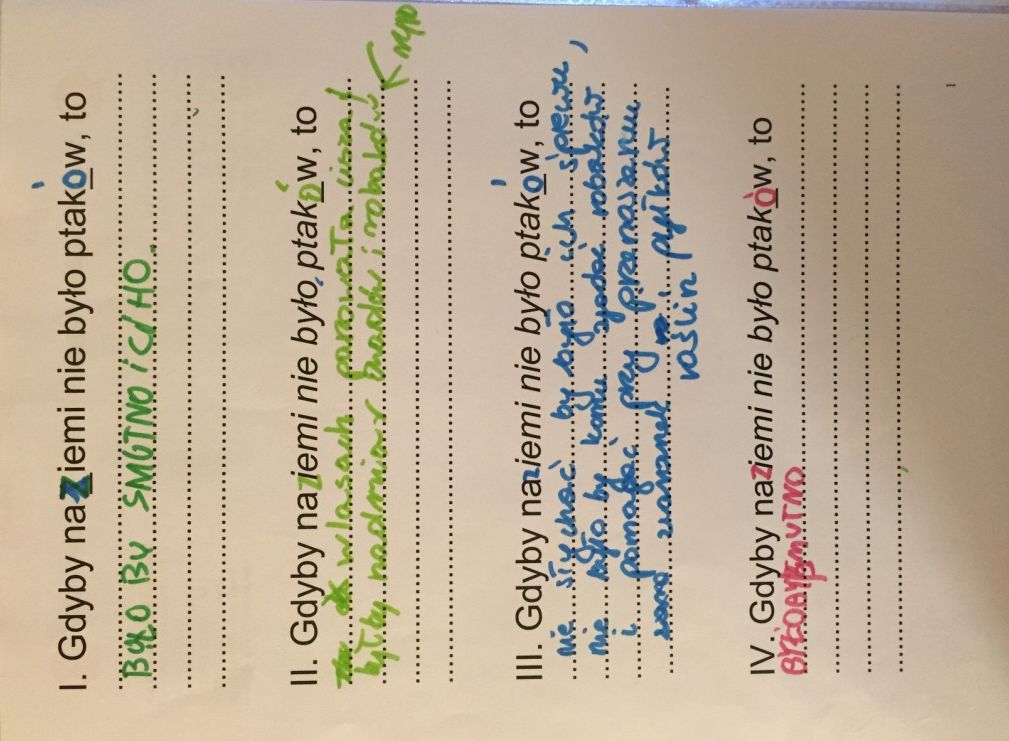 I. Gdyby naziemi nie było ptaków, to
BYŁO BY SMUTNO i CIHO.
II. Gdyby naziemi nie było ptaków, to
w lasach panowała cisza!
byłby nadmiar i robaków!
III. Gdyby naziemi nie było ptaków, to
nie słychać by było ich śpiewu,
nie było by komu zjadać robaków
i pomagać przy przenoszeniu
ziarenek i pyłków
roślin
IV. Gdyby naziemi nie było ptaków, to
BYŁOBY SMUTNO
1